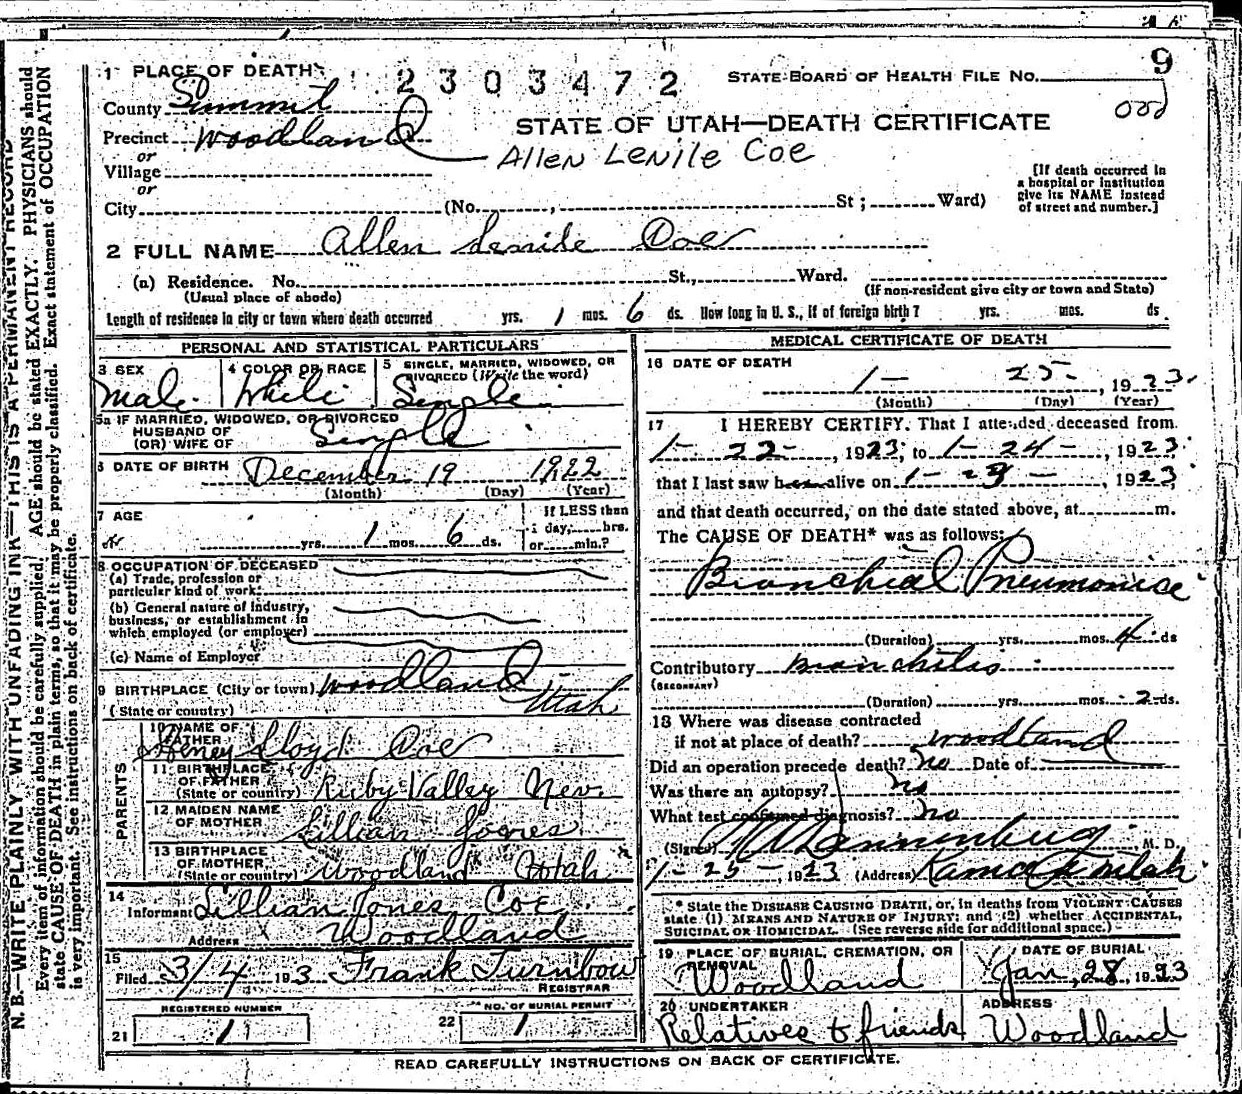 9
1 PLACE OF DEATH 2303472 STATE BOARD OF HEALTH FILE NO.
County Summit
Precinct Woodland
or
Village
or
City (No. , St ; Ward)
STATE OF UTAH—DEATH CERTIFICATE
Allen Lenile Coe
[If death occurred in
a hospital or institution
give its NAME instead
of street and number.]
2 FULL NAME Allen Lenile Coe
(a) Residence. No. St., Ward.
(Usual place of abode) (If non-resident give city or town and State)
Length of residence in city or town where death occurred yrs. 1 mos. 6 ds. How long in U. S., if of foreign birth? yrs. mos. ds.
PERSONAL AND STATISTICAL PARTICULARS
3 SEX Male
4 COLOR OR RACE White
5 SINGLE, MARRIED, WIDOWED, OR
DIVORCED (Write the word)
Single
5a IF MARRIED, WIDOWED, OR DIVORCED
HUSBAND OF
(OR) WIFE OF Single
6 DATE OF BIRTH December 19 1922
(Month) (Day) (Year)
7 AGE yrs. 1 mos. 6 ds.
If LESS than
1 day, hrs.
or min.?
8 OCCUPATION OF DECEASED
(a) Trade, profession or
particular kind of work
(b) General nature of industry,
business, or establishment in
which employed (or employer)
(c) Name of Employer
9 BIRTHPLACE (City or town) Woodland
(State or country) Utah
PARENTS
10 NAME OF
FATHER Henry Lloyd Coe
11 BIRTHPLACE
OF FATHER
(State or country) Ruby Valley Nev.
12 MAIDEN NAME
OF MOTHER Lillian Jones
13 BIRTHPLACE
OF MOTHER
(State or country) Woodland Utah
14
Informant Lillian Jones Coe
Address Woodland
15
Filed 3/4 193 Frank Turnbow
REGISTRAR
REGISTERED NUMBER
21 1
NO. OF BURIAL PERMIT
22 1
MEDICAL CERTIFICATE OF DEATH
16 DATE OF DEATH
1— 25— , 1923.
(Month) (Day) (Year)
17 I HEREBY CERTIFY. That I attended deceased from
1— 22— , 1923; to 1— 24— , 1923
that I last saw h alive on 1— , 1923
and that death occurred, on the date stated above, at m.
The CAUSE OF DEATH* was as follows:
Bronchial Pneumonia
(Duration) yrs. mos. 4 ds
Contributory Bronchitis
(SECONDARY)
(Duration) yrs. mos. 2 ds.
18 Where was disease contracted
if not at place of death? Woodland
Did an operation precede death? No Date of
Was there an autopsy? No
What test confirmed diagnosis? No
(Signed) M. D.
1— 25— , 1923 (Address) Kamas Utah
* State the DISEASE CAUSING DEATH, or, in deaths from VIOLENT CAUSES
state (1) MEANS AND NATURE OF INJURY; and (2) whether ACCIDENTAL,
SUICIDAL OR HOMICIDAL. (See reverse side for additional space.)
19 PLACE OF BURIAL, CREMATION, OR
REMOVAL
Woodland
DATE OF BURIAL
Jan, 28, 1923
20 UNDERTAKER
Relatives & friends
ADDRESS
Woodland
READ CAREFULLY INSTRUCTIONS ON BACK OF CERTIFICATE.
N. B.—WRITE PLAINLY WITH UNFADING INK—THIS IS A PERMANENT RECORD
Every item of information should be carefully supplied. AGE should be stated EXACTLY. PHYSICIANS should
state CAUSE OF DEATH in plain terms, so that it may be properly classified. Exact statement of OCCUPATION
is very important. See instructions on back of certificate.